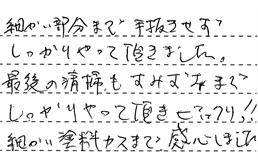 細かい部分まで手抜きせず
しっかりやって頂きました。
最後の清掃もすみずみまで
しっかりやって頂きビックリ!!
細かい塗料カスまで感心しました